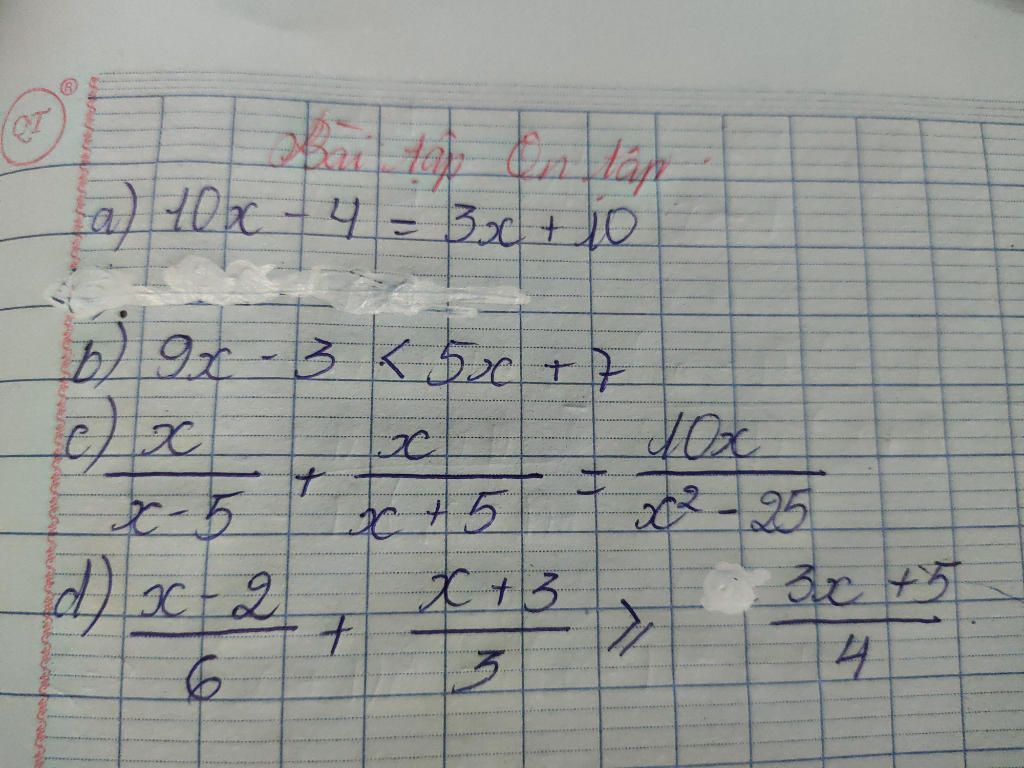 Bài tập Ôn tập.
a) 10x - 4 = 3x + 10
b) 9x - 3 < 5x + 7
c) x/(x - 5) + x/(x + 5) = 10x/(x² - 25)
d) (x - 2)/6 + (x + 3)/3 ⩾ (3x + 5)/4